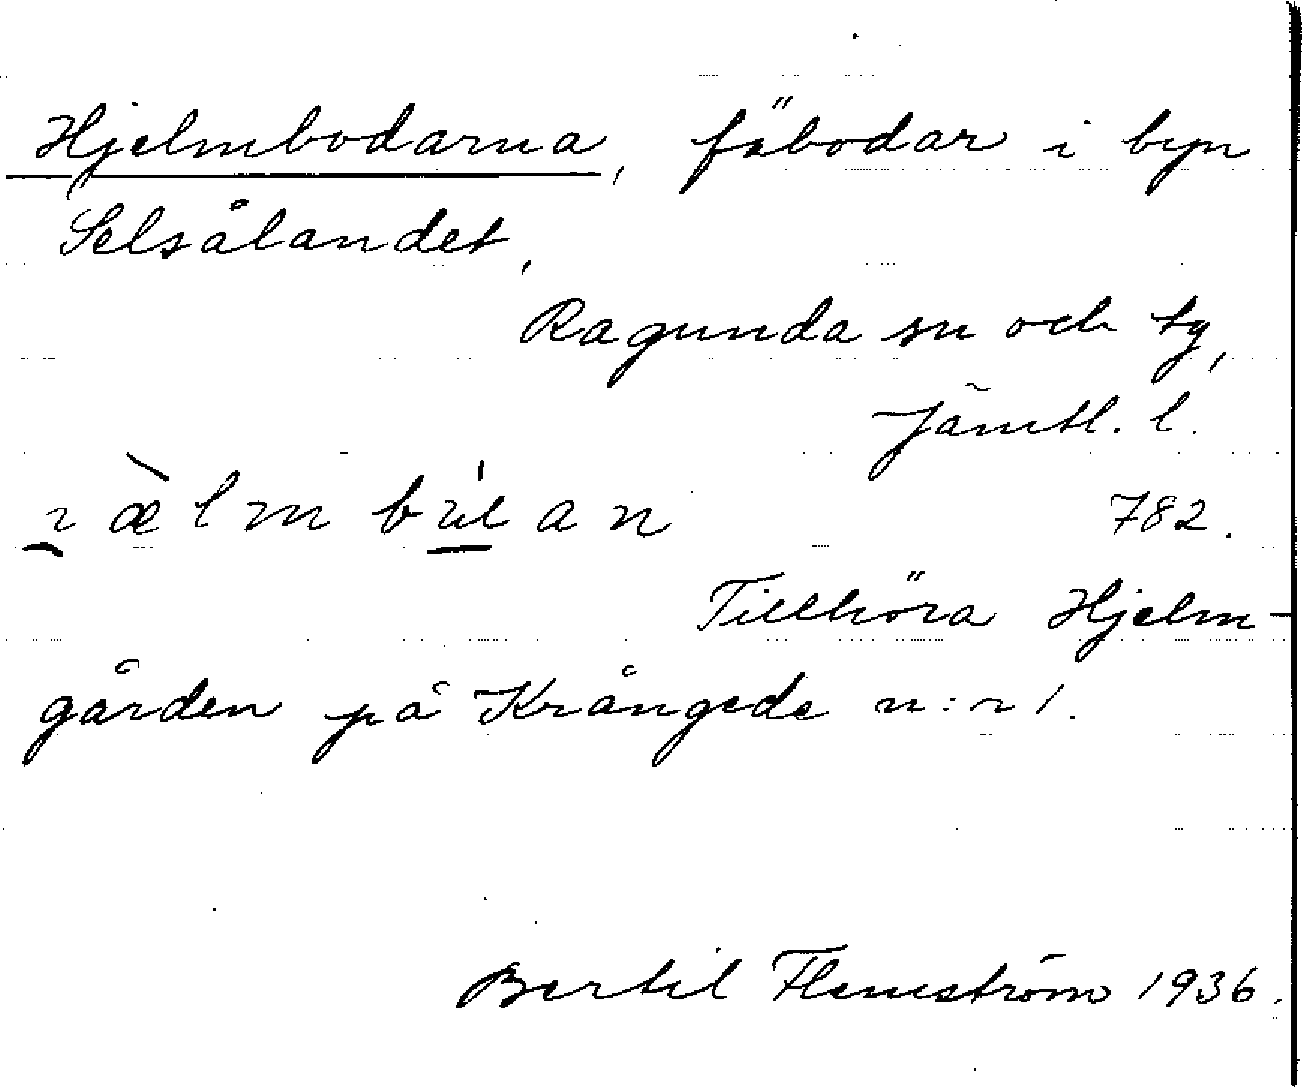 Hjelmbodarna, fäbodar i byn
Selsålandet,
Ragunda sn och tg,
Jämtl. l.
782.
Tillhöra Hjelm-
gården på Krångede n:r 1.
Bertil Flemström 1936.